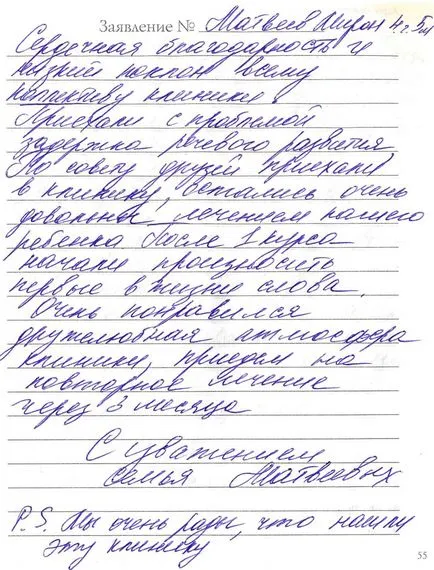 Заявление № Матвеев Мирон 4 г. 5 м
Сердечная благодарность и
низкий поклон всему
коллективу клиники.
Приехали с проблемой
задержка речевого развития
По совету друзей приехали
в клинику, остались очень
довольны лечением нашего
ребенка После 1 курса
начали произносить
первые в жизни слова.
Очень понравился
дружелюбная атмосфера
клиники, приедем на
повторное лечение
через 3 месяца
С уважением
семья Матвеевых
P.S. Мы очень рады, что нашли
эту клинику
55